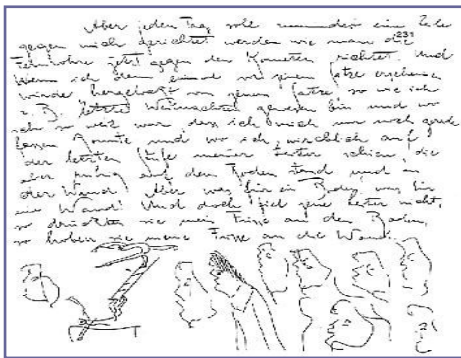 Aber jeden Tag soll zumindest eine Zeile
gegen mich gerichtet werden wie man die 231
Fernrohre jetzt gegen den Kometen richtet. Und
wenn ich dann einmal vor jenem Satze erscheinen
würde hergelockt von jenem Satze so wie ich
z. B. letzte Weihnachten gewesen bin und wo
ich so weit war, dass ich mich nur noch gerade
fassen konnte und wo ich wirklich auf
der letzten Stufe meiner Leiter schien, die
aber ruhig auf dem Boden stand und an
der Wand. Aber was für ein Boden, was für
eine Wand! Und doch fiel jene Leiter nicht,
so drückten sie meine Füsse an den Boden,
so hoben sie meine Füsse an die Wand.